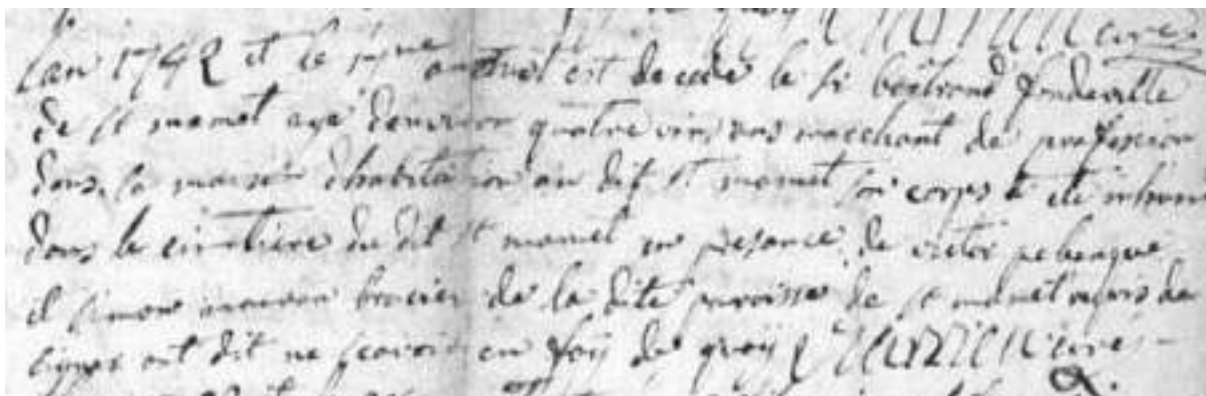 en foy de quoy curé
l'an 1742 et le 17me est decedé le sr bertrand fondeville
de st mamet agé denviron quatre vins ans marchant de profession
dans sa maison dhabitation au dit st mamet son corps a eté inhumé
dans le cimetiere du dit st mamet en presance de victor
et simon bracier de la dite parroisse de st mamet requis de
signer ont dit ne scavoir en foy de quoy curé